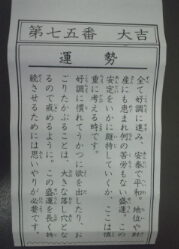 第七五番 大吉
運勢
全て好調に進み、安泰で平和。地位や財
産にも恵まれ何の苦労もない盛運。この
安定をいかに維持していくか、ここは慎
重に考える時です。
好調に慣れてうかつに欲を出したり、お
ごりたかぶることは、大きな落し穴とな
るので戒めるように。この盛運を長く持
続させるためには思いやりが必要です。